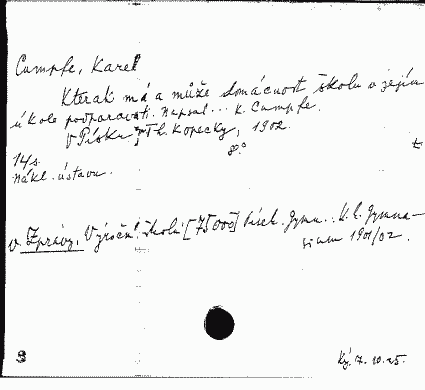 Cumpfe, Karel
Kterak má a může domácnost školu v jejím
úkole podporovati. Napsal... K. Cumpfe.
V Písku, Th. Kopecký, 1902.
8°
14 s.
Nákl. ústavu.
v. Zprávy. Výroční školní [75000] Písek. Gymn.. K. k. Gymna-
sium 1901/02.
7.10.25.